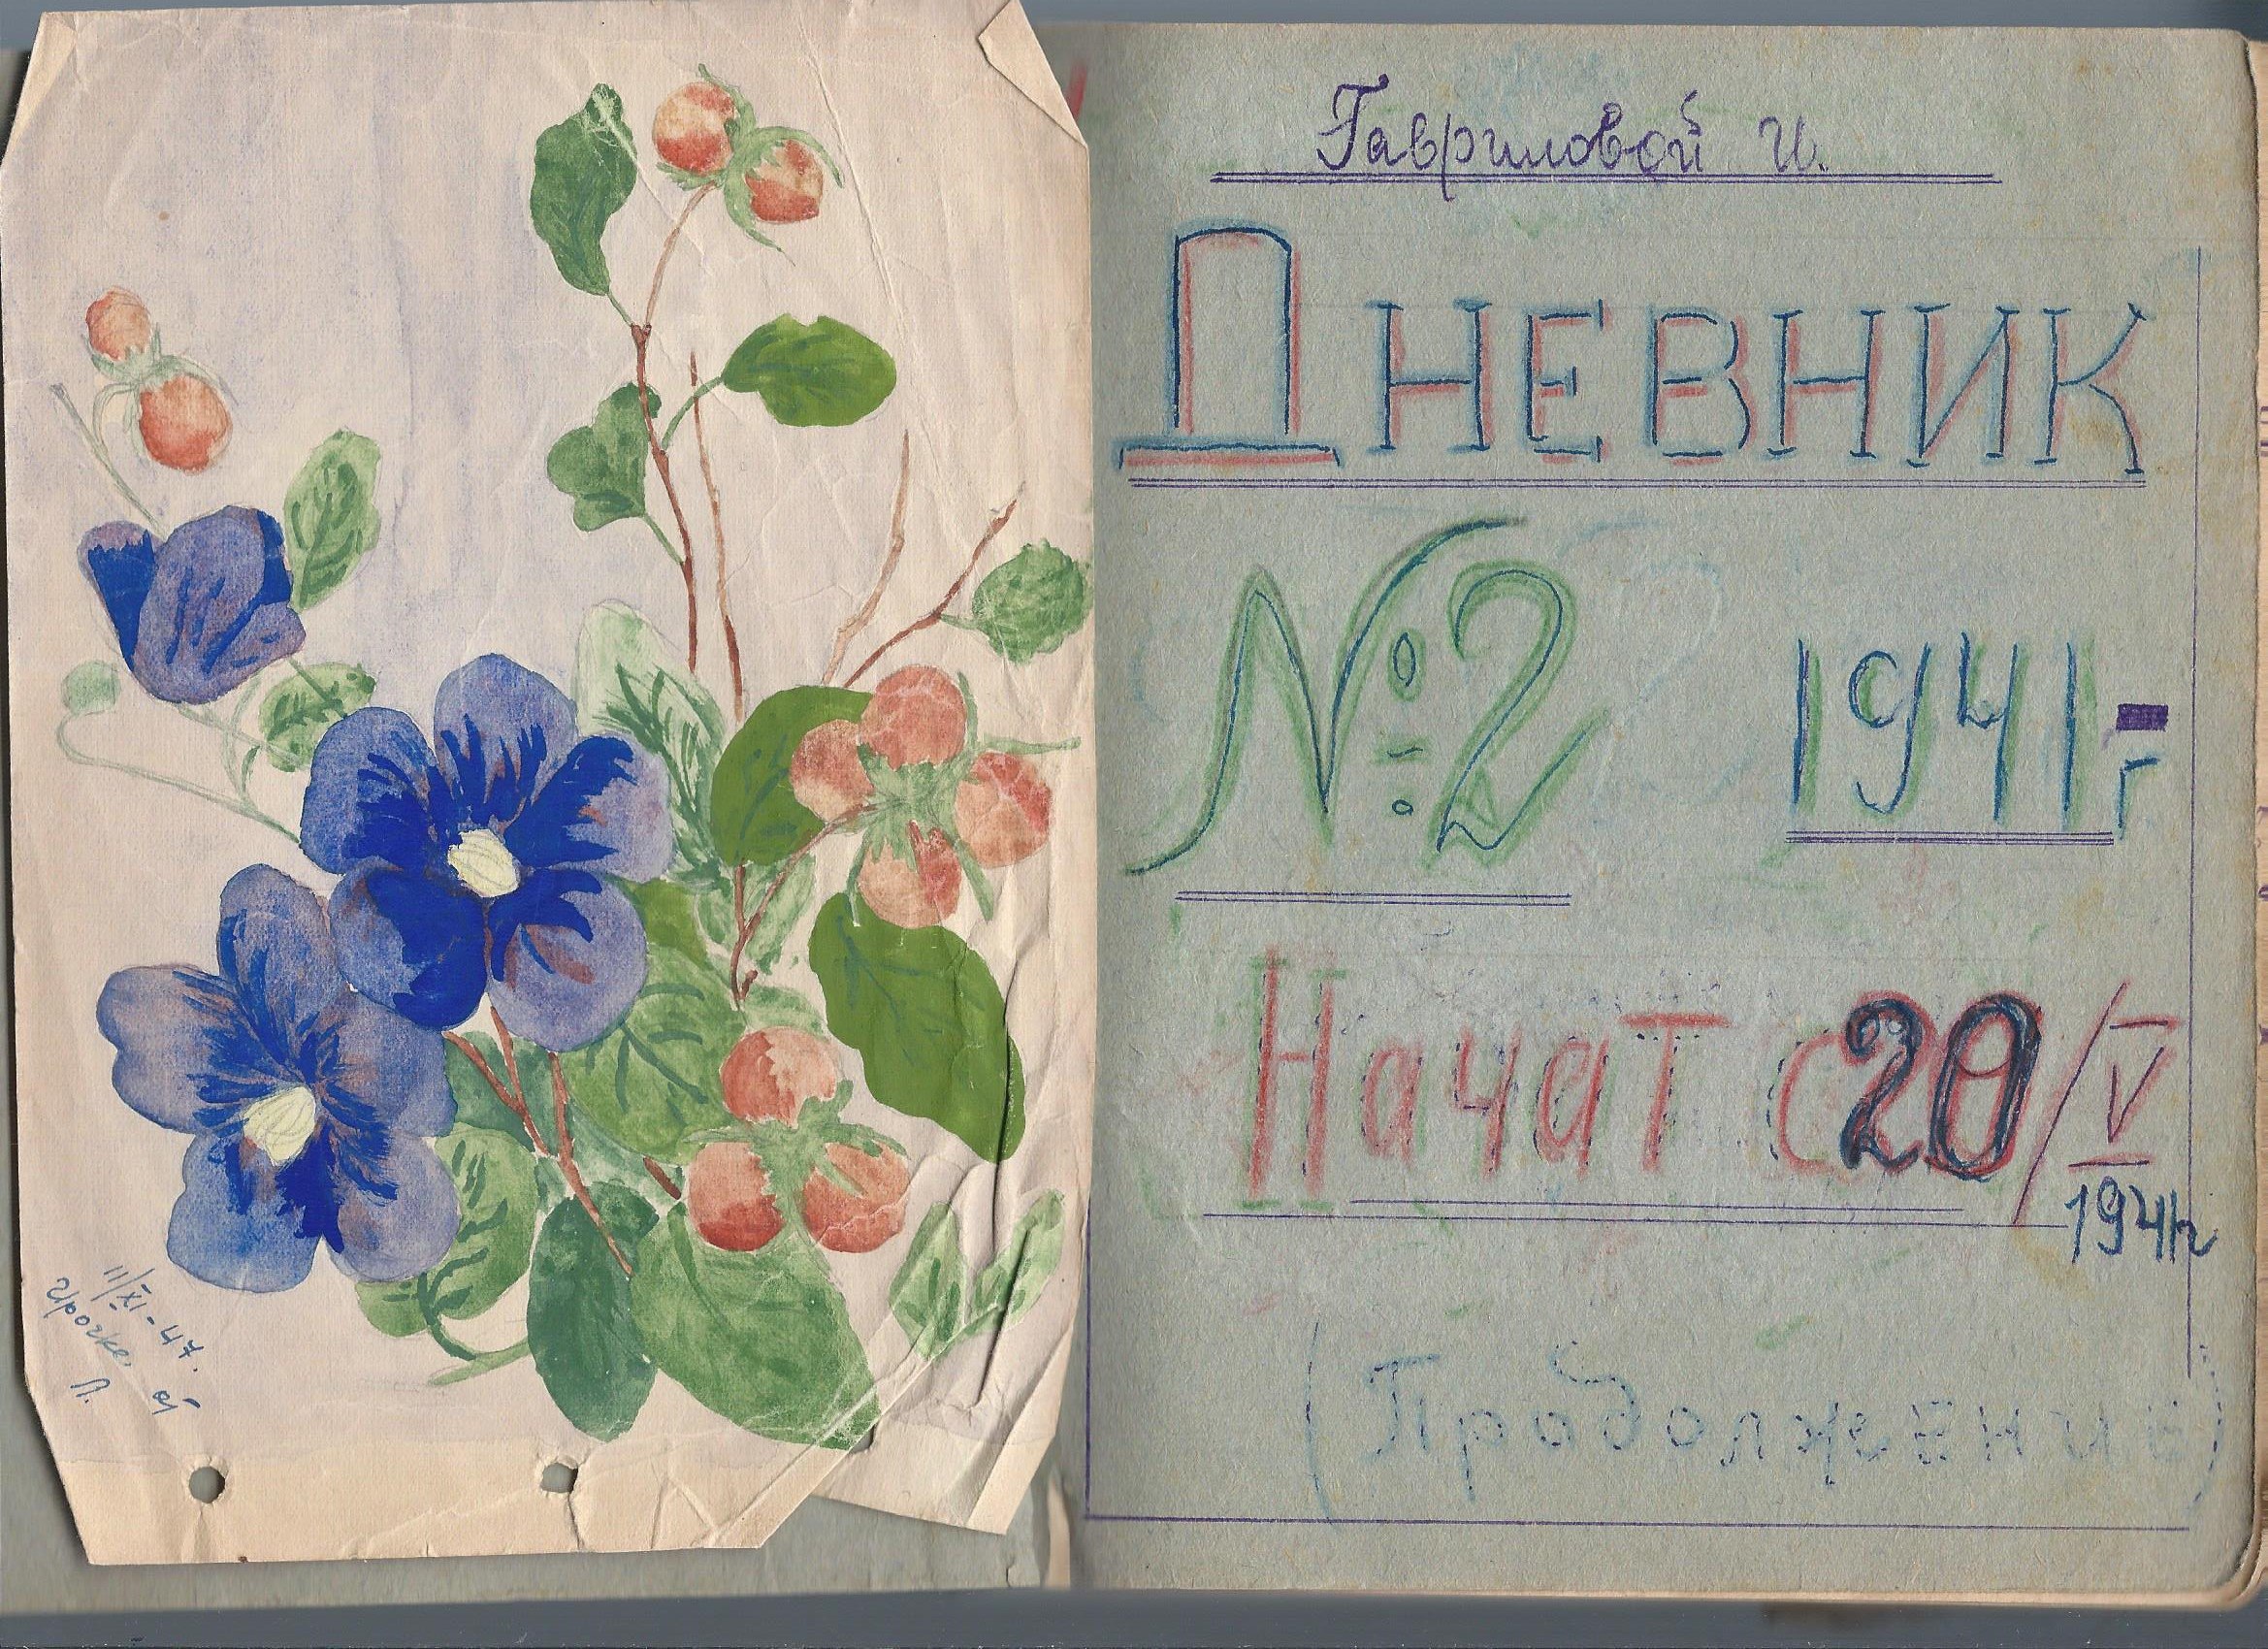 11/XI-47.
Ирочке
от
Л.
Гавриловой И.
Дневник
№2 1941-г
Начат с 20/V
1941г
(Продолжение)